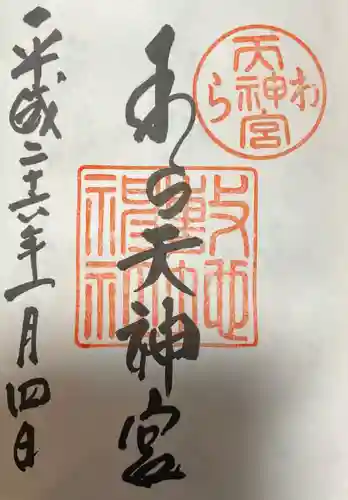 わら天神宮
わら天神宮
平成二十六年一月四日